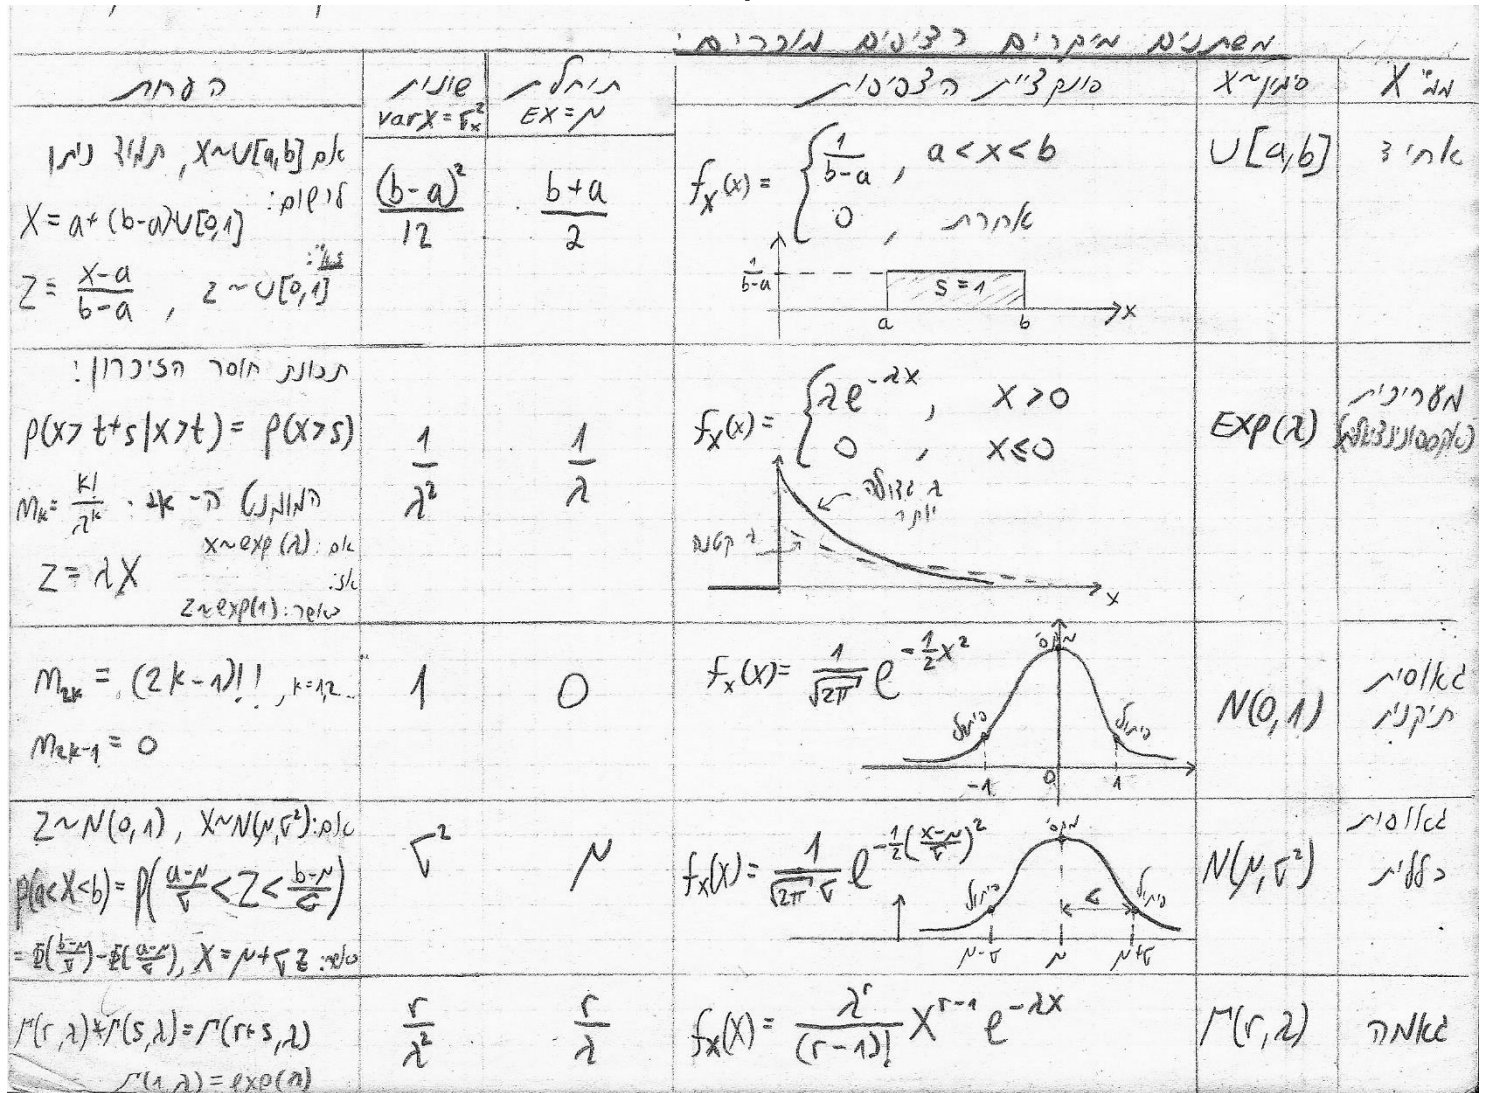 משתנים מיקריים רציפים מוכרים:
ממ"X סימון X~ פונקציית הצפיפות תוחלת EX=μ שונות varX=σₓ² הערות
אחיד
U[a,b]
f_X(x) = { 1/(b-a) , a<x<b
0 , אחרת
1/(b-a) S=1 a b x
(b+a)/2
(b-a)²/12
אם X~U[a,b], תמיד ניתן
לרשום:
X = a+(b-a)U[0,1]
Z = (x-a)/(b-a) , Z~U[0,1]
מעריכית
(אקספוננציאלית)
Exp(λ)
f_X(x) = { λe^{-λx} , x>0
0 , x≤0
λ גדולה
יותר
λ קטנה
x
1/λ
1/λ²
תכונת חוסר הזיכרון:
p(x>t+s|x>t) = p(x>s)
המומנט ה-k: m_k = k!/λ^k
אם: X~exp(λ)
אז:
Z = λX
כאשר: Z~exp(1)
גאוסית
תיקנית
N(0,1)
f_X(x) = 1/√(2π) e^{-½x²}
מקס'
פיתול פיתול
-1 0 1
0
1
m_{2k} = (2k-1)!! , k=1,2..
m_{2k-1} = 0
גאוסית
כללית
N(μ,σ²)
f_X(x) = 1/(√(2π)σ) e^{-½((x-μ)/σ)²}
מקס'
פיתול σ פיתול
μ-σ μ μ+σ
μ
σ²
אם: Z~N(0,1), X~N(μ,σ²)
p(a<X<b) = p((a-μ)/σ < Z < (b-μ)/σ)
= Φ((b-μ)/σ)-Φ((a-μ)/σ), X=μ+σZ :כאשר
גאמה
Γ(r,λ)
f_X(x) = λ^r/(r-1)! x^{r-1} e^{-λx}
r/λ
r/λ²
Γ(r,λ)*Γ(s,λ)=Γ(r+s,λ)
Γ(1,λ)=exp(λ)